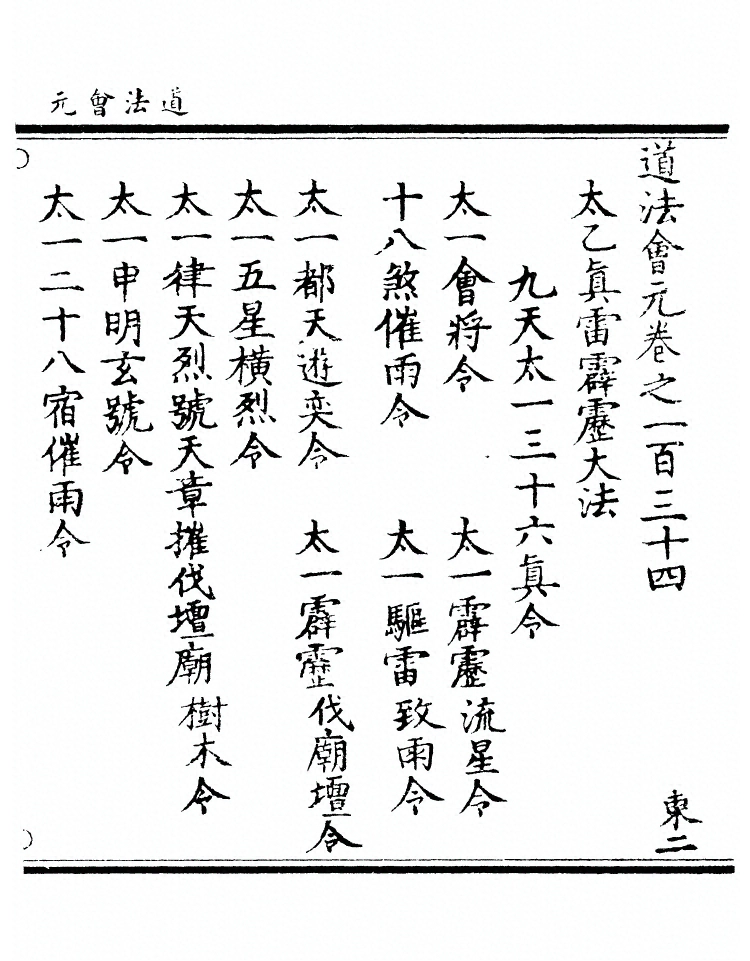 道法會元
道法會元卷之一百三十四 東二
太乙眞雷霹靂大法
九天太一三十六眞令
太一會將令 太一霹靂流星令
十八煞催雨令 太一驅雷致雨令
太一都天遊奕令 太一霹靂伐廟壇令
太一五星橫烈令
太一律天烈號天章摧伐壇廟樹木令
太一申明玄號令
太一二十八宿催雨令